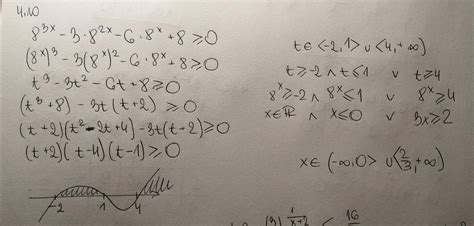 4.10
8^{3x} - 3·8^{2x} - 6·8^x + 8 ≥ 0
(8^x)^3 - 3(8^x)^2 - 6·8^x + 8 ≥ 0
t^3 - 3t^2 - 6t + 8 ≥ 0
(t^3 + 8) - 3t(t + 2) ≥ 0
(t + 2)(t^2 - 2t + 4) - 3t(t + 2) ≥ 0
(t + 2)(t - 4)(t - 1) ≥ 0
-2 1 4
t ∈ <-2, 1> ∪ <4, +∞)
t ≥ -2 ∧ t ≤ 1 ∨ t ≥ 4
8^x ≥ -2 ∧ 8^x ≤ 1 ∨ 8^x ≥ 4
x ∈ ℝ ∧ x ≤ 0 ∨ 3x ≥ 2
x ∈ (-∞, 0> ∪ <2/3, +∞)